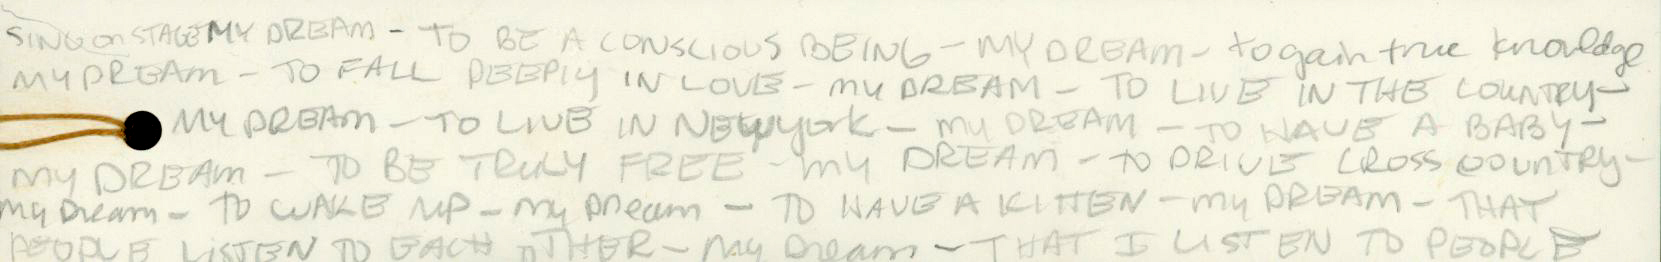 SING on STAGE MY DREAM - TO BE A CONSCIOUS BEING - MY DREAM - to gain true knowldge
MY DREAM - TO FALL DEEPLY IN LOVE - MY DREAM - TO LIVE IN THE COUNTRY -
MY DREAM - TO LIVE IN NEWyork - MY DREAM - TO HAVE A BABY -
MY DREAM - TO BE TRULY FREE - MY DREAM - TO DRIVE CROSS COUNTRY -
My Dream - TO WAKE UP - My Dream - TO HAVE A KITTEN - MY DREAM - THAT
PEOPLE LISTEN TO EACH OTHER - My Dream - THAT I LISTEN TO PEOPLE